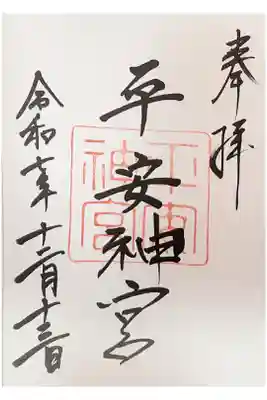 奉拝
平安神宮
令和年十二月十三日
平安神宮